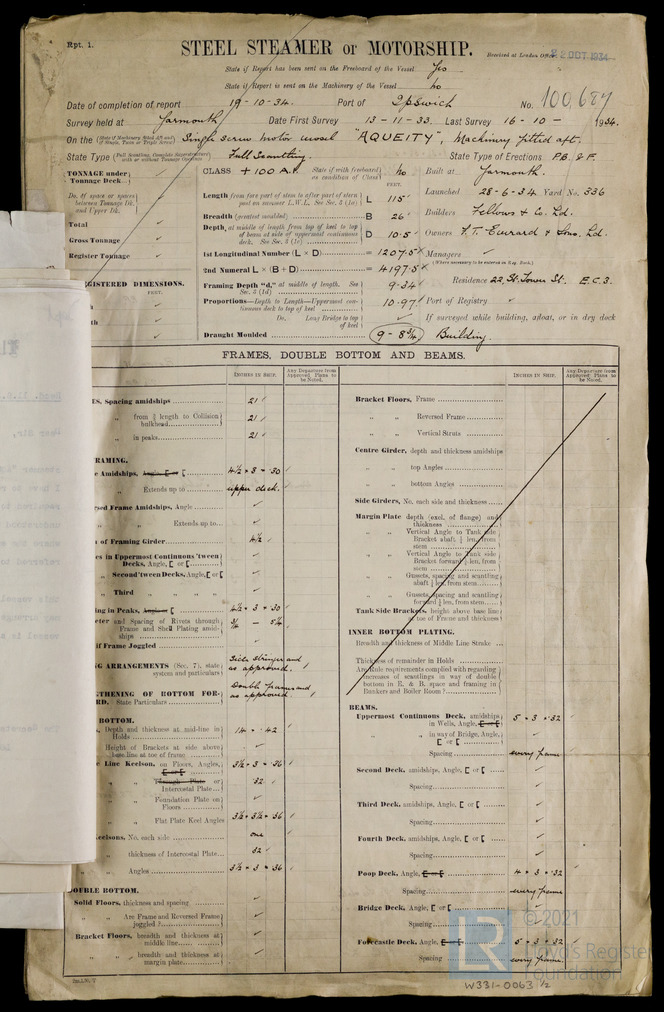 Rpt. 1.
STEEL STEAMER or MOTORSHIP.
Received at London Office 22 OCT 1934
State if Report has been sent on the Freeboard of the Vessel Yes
State if Report is sent on the Machinery of the Vessel no
Date of completion of report 19-10-34. Port of Ipswich No. 100,687
Survey held at Yarmouth Date First Survey 13-11-33. Last Survey 16-10- 1934.
On the (State if Machinery fitted Aft and if Single, Twin or Triple Screw) Single screw motor vessel "AQUEITY", Machinery fitted aft.
State Type (Full Scantling, Complete Superstructure with or without Tonnage Openings) Full Scantling. State Type of Erections P.B. & F.
TONNAGE under Tonnage Deck
Do. of space or spaces between Tonnage Dk. and Upper Dk.
Total
Gross Tonnage
Register Tonnage
REGISTERED DIMENSIONS.
FEET.
CLASS +100 A.1. State if with freeboard as condition of Class no
FEET.
Length from fore part of stem to after part of stern post on summer L.W.L. See Sec. 3 (1a) L 115
Breadth (greatest moulded) B 26
Depth, at middle of length from top of keel to top of beam at side of uppermost continuous deck. See Sec. 3 (1c) D 10.5
1st Longitudinal Number (L × D) = 1207.5
2nd Numeral L × (B + D) = 4197.5
Framing Depth "d," at middle of length. See Sec. 3 (1d) 9.34
Proportions—Depth to Length—Uppermost continuous deck to top of keel 10.97
Do. Long Bridge to top of keel
Draught Moulded 9-8 3/4
Built at Yarmouth.
Launched 28-6-34 Yard No. 336
Builders Fellows & Co. Ld.
Owners F. T. Everard & Sons. Ld.
Managers
(Where necessary to be entered on Reg. Book.)
Residence 22, St. Tower St. E.C.3.
Port of Registry
If surveyed while building, afloat, or in dry dock
Building.
FRAMES, DOUBLE BOTTOM AND BEAMS.
INCHES IN SHIP. Any Departure from Approved Plans to be Noted.
INCHES IN SHIP. Any Departure from Approved Plans to be Noted.
Spacing amidships 21
from length to Collision bulkhead 21
in peaks 21
FRAMING.
Amidships, Angle, [ or [ 4½ × 3 × .30
Extends up to upper deck.
Frame Amidships, Angle
Extends up to
of Framing Girder 4½
in Uppermost Continuous 'tween Decks, Angle, [ or [
Second 'tween Decks, Angle, [ or [
Third
in Peaks, Angle or [ 4½ × 3 × .30
and Spacing of Rivets through Frame and Shell Plating amidships 3/4 - 5¼
if Frame Joggled
ARRANGEMENTS (Sec. 7), state system and particulars Side stringer and as approved.
STRENGTHENING OF BOTTOM FORWARD. State Particulars Double frames and as approved.
BOTTOM.
Depth and thickness at mid-line in Holds 14 × .42
Height of Brackets at side above base line at toe of frame
Line Keelson, on Floors, Angles, [ or [ 3½ × 3 × .36
Through Plate or Intercostal Plate .32
Foundation Plate on Floors
Flat Plate Keel Angles 3½ × 3½ × .36
Keelsons, No. each side one
thickness of Intercostal Plate .32
Angles 3½ × 3 × .36
DOUBLE BOTTOM.
Solid Floors, thickness and spacing
Are Frame and Reversed Frame joggled?
Bracket Floors, breadth and thickness at middle line
breadth and thickness at margin plate
Bracket Floors, Frame
Reversed Frame
Vertical Struts
Centre Girder, depth and thickness amidships
top Angles
bottom Angles
Side Girders, No. each side and thickness
Margin Plate depth (excl. of flange) and thickness
Vertical Angle to Tank side Bracket abaft ¼ len. from stem
Vertical Angle to Tank side Bracket forward ¼ len. from stem
Gussets, spacing and scantling abaft ¼ len. from stem
Gussets, spacing and scantling forward ¼ len. from stem
Tank Side Brackets, height above base line at toe of Frame and thickness
INNER BOTTOM PLATING.
Breadth and thickness of Middle Line Strake
Thickness of remainder in Holds
Are Rule requirements complied with regarding increases of scantlings in way of double bottom in E. & B. space and framing in Bunkers and Boiler Room?
BEAMS.
Uppermost Continuous Deck, amidships in Wells, Angle, [ or [ 5 × 3 × .32
in way of Bridge, Angle, [ or [
Spacing every frame
Second Deck, amidships, Angle, [ or [
Spacing
Third Deck, amidships, Angle, [ or [
Spacing
Fourth Deck, amidships, Angle, [ or [
Spacing
Poop Deck, Angle, [ or [ 4 × 3 × .32
Spacing every frame
Bridge Deck, Angle, [ or [
Spacing
Forecastle Deck, Angle, [ or [ 5 × 3 × .32
Spacing every frame
© 2021
Lloyd's Register Foundation
W331-0063 ½